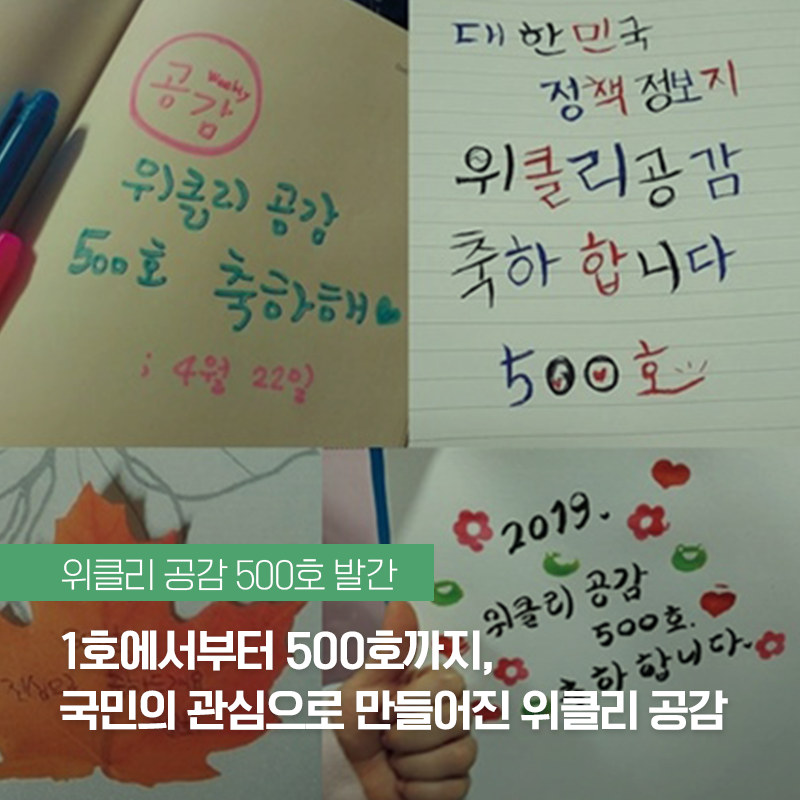 공감
Weekly
위클리 공감
500호 축하해
; 4월 22일
대한민국
정책정보지
위클리공감
축하합니다
500호
2019.
위클리 공감
500호.
축하합니다.
위클리 공감 500호 발간
1호에서부터 500호까지,
국민의 관심으로 만들어진 위클리 공감